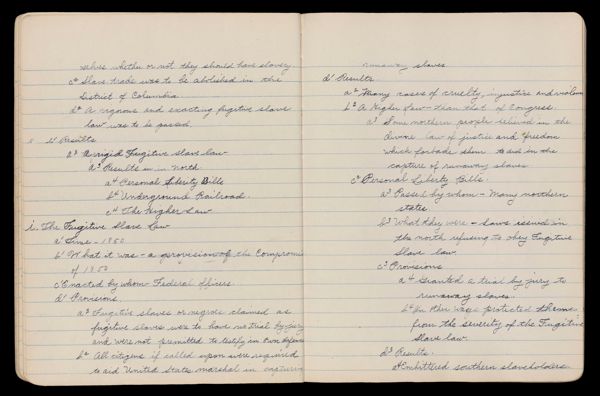 selves whether or not they should have slavery.
c⁴ Slave trade was to be abolished in the
District of Columbia.
d⁴ A rigorous and exacting fugitive slave
law was to be passed.
Results
a³ A rigid Fugitive slave law
a³ Results in North
a⁴ Personal Liberty Bills
b⁴ Underground Railroad.
c⁴ The Higher Law
i. The Fugitive Slave Law
a' Time - 1850
b' What it was - a provision of the Compromise
of 1850
c' Enacted by whom Federal officers.
d' Provisions.
a² Fugitive slaves or negroes claimed as
fugitive slaves was to have no trial by jury
and were not permitted to testify in own
b² All citizens if called upon were required
to aid United States marshal in capturing
runaway slaves
d' Results.
a² Many cases of cruelty, injustice and violence
b² A Higher Law - than that of Congress.
a³ Some northern people believed in the
divine law of justice and freedom
which forbade them to aid in the
capture of runaway slaves
c² Personal Liberty Bills.
a³ Passed by whom - Many northern
states.
b³ What they were - Laws issued in
the north refusing to obey Fugitive
Slave law.
c³ Provisions
a⁴ Granted a trial by jury to
runaway slaves.
b⁴ In other ways protected them
from the severity of the Fugitive
Slave law.
d³ Results.
a⁴ Embittered southern slaveholders.